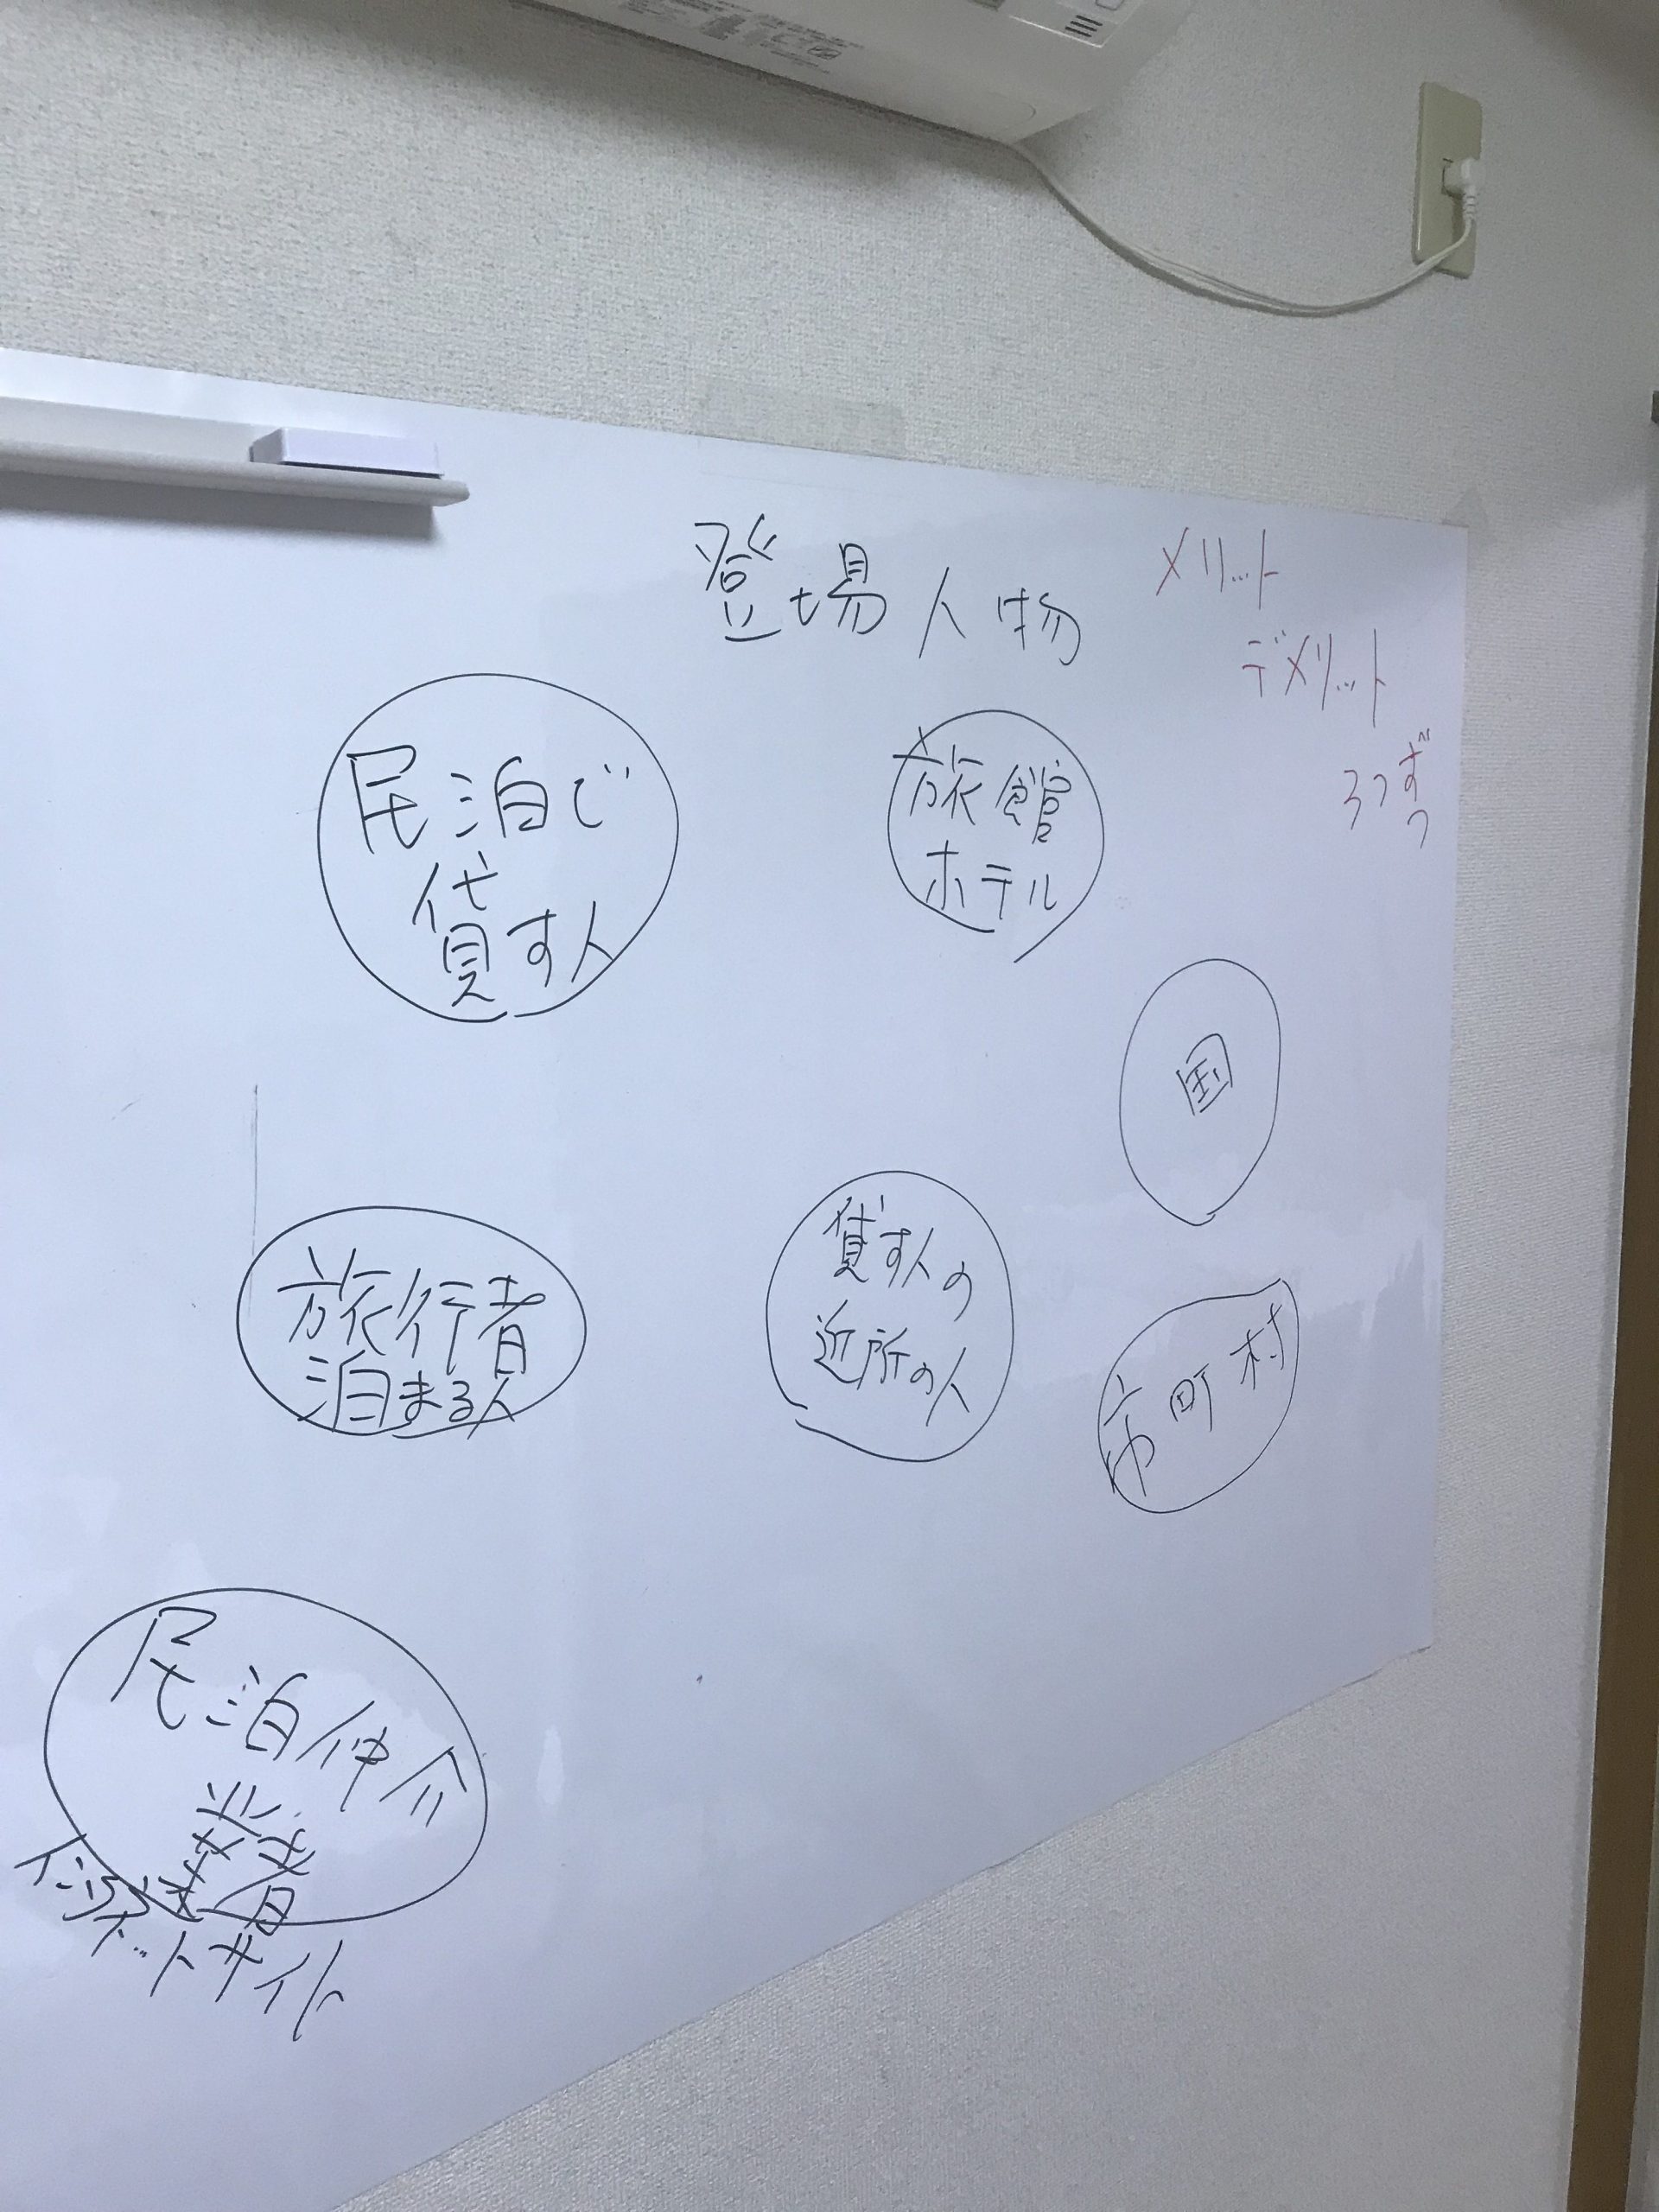 登場人物
メリット
デメリット
3つずつ
民泊で
貸す人
旅館
ホテル
国
旅行者
泊まる人
貸す人の
近所の人
市町村
民泊仲介
業者
インターネットサイト